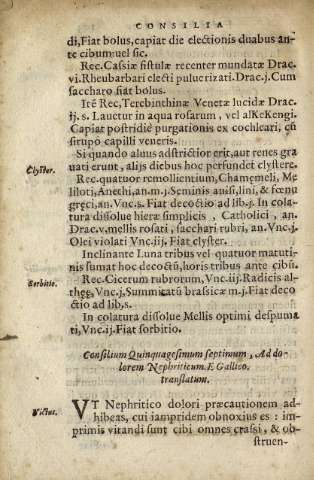 CONSILIA
di, Fiat bolus, capiat die electionis duabus an-
te cibum uel sic.
Rec. Cassiæ fistulæ recenter mundatæ Drac.
vi. Rheubarbari electi puluerizati. Drac. j. Cum
saccharo fiat bolus.
Itē Rec, Terebinthinæ Venetæ lucidæ Drac.
ij. s. Lauetur in aqua rosarum, vel alKeKengi.
Capiat postridie purgationis ex cochleari, cū
sirupo capilli veneris.
Si quando aluus adstrictior erit, aut renes gra
uati erunt, alijs diebus hoc perfundet clystere.
Clyster.
Rec. quatuor remollientium, Chamęmeli, Me
liloti, Anethi, an. m. j. Seminis anisi, lini, & fœnu
gręci, an. Vnc. s. Fiat decoctio ad lib. j. In colatu
tura dissolue hieræ simplicis, Catholici, an.
Drac. v. mellis rosati, sacchari rubri, an. Vnc. j.
Olei violati Vnc. iij. Fiat clyster.
Inclinante Luna tribus vel quatuor matuti-
nis sumat hoc decoctū, horis tribus ante cibū.
Sorbitio.
Rec. Cicerum rubrorum, Vnc. iij. Radicis al-
thęę, Vnc. j. Summitatū brassicæ m. j. Fiat deco
ctio ad lib. s.
In colatura dissolue Mellis optimi despuma
ti, Vnc. ij. Fiat sorbitio.
Consilium Quinquagesimum septimum, Ad do-
lorem Nephriticum. E Gallico.
translatum.
Victus.
VT Nephritico dolori præcautionem ad-
hibeas, cui iampridem obnoxius es: im-
primis vitandi sunt cibi omnes crassi, & ob-
struen-